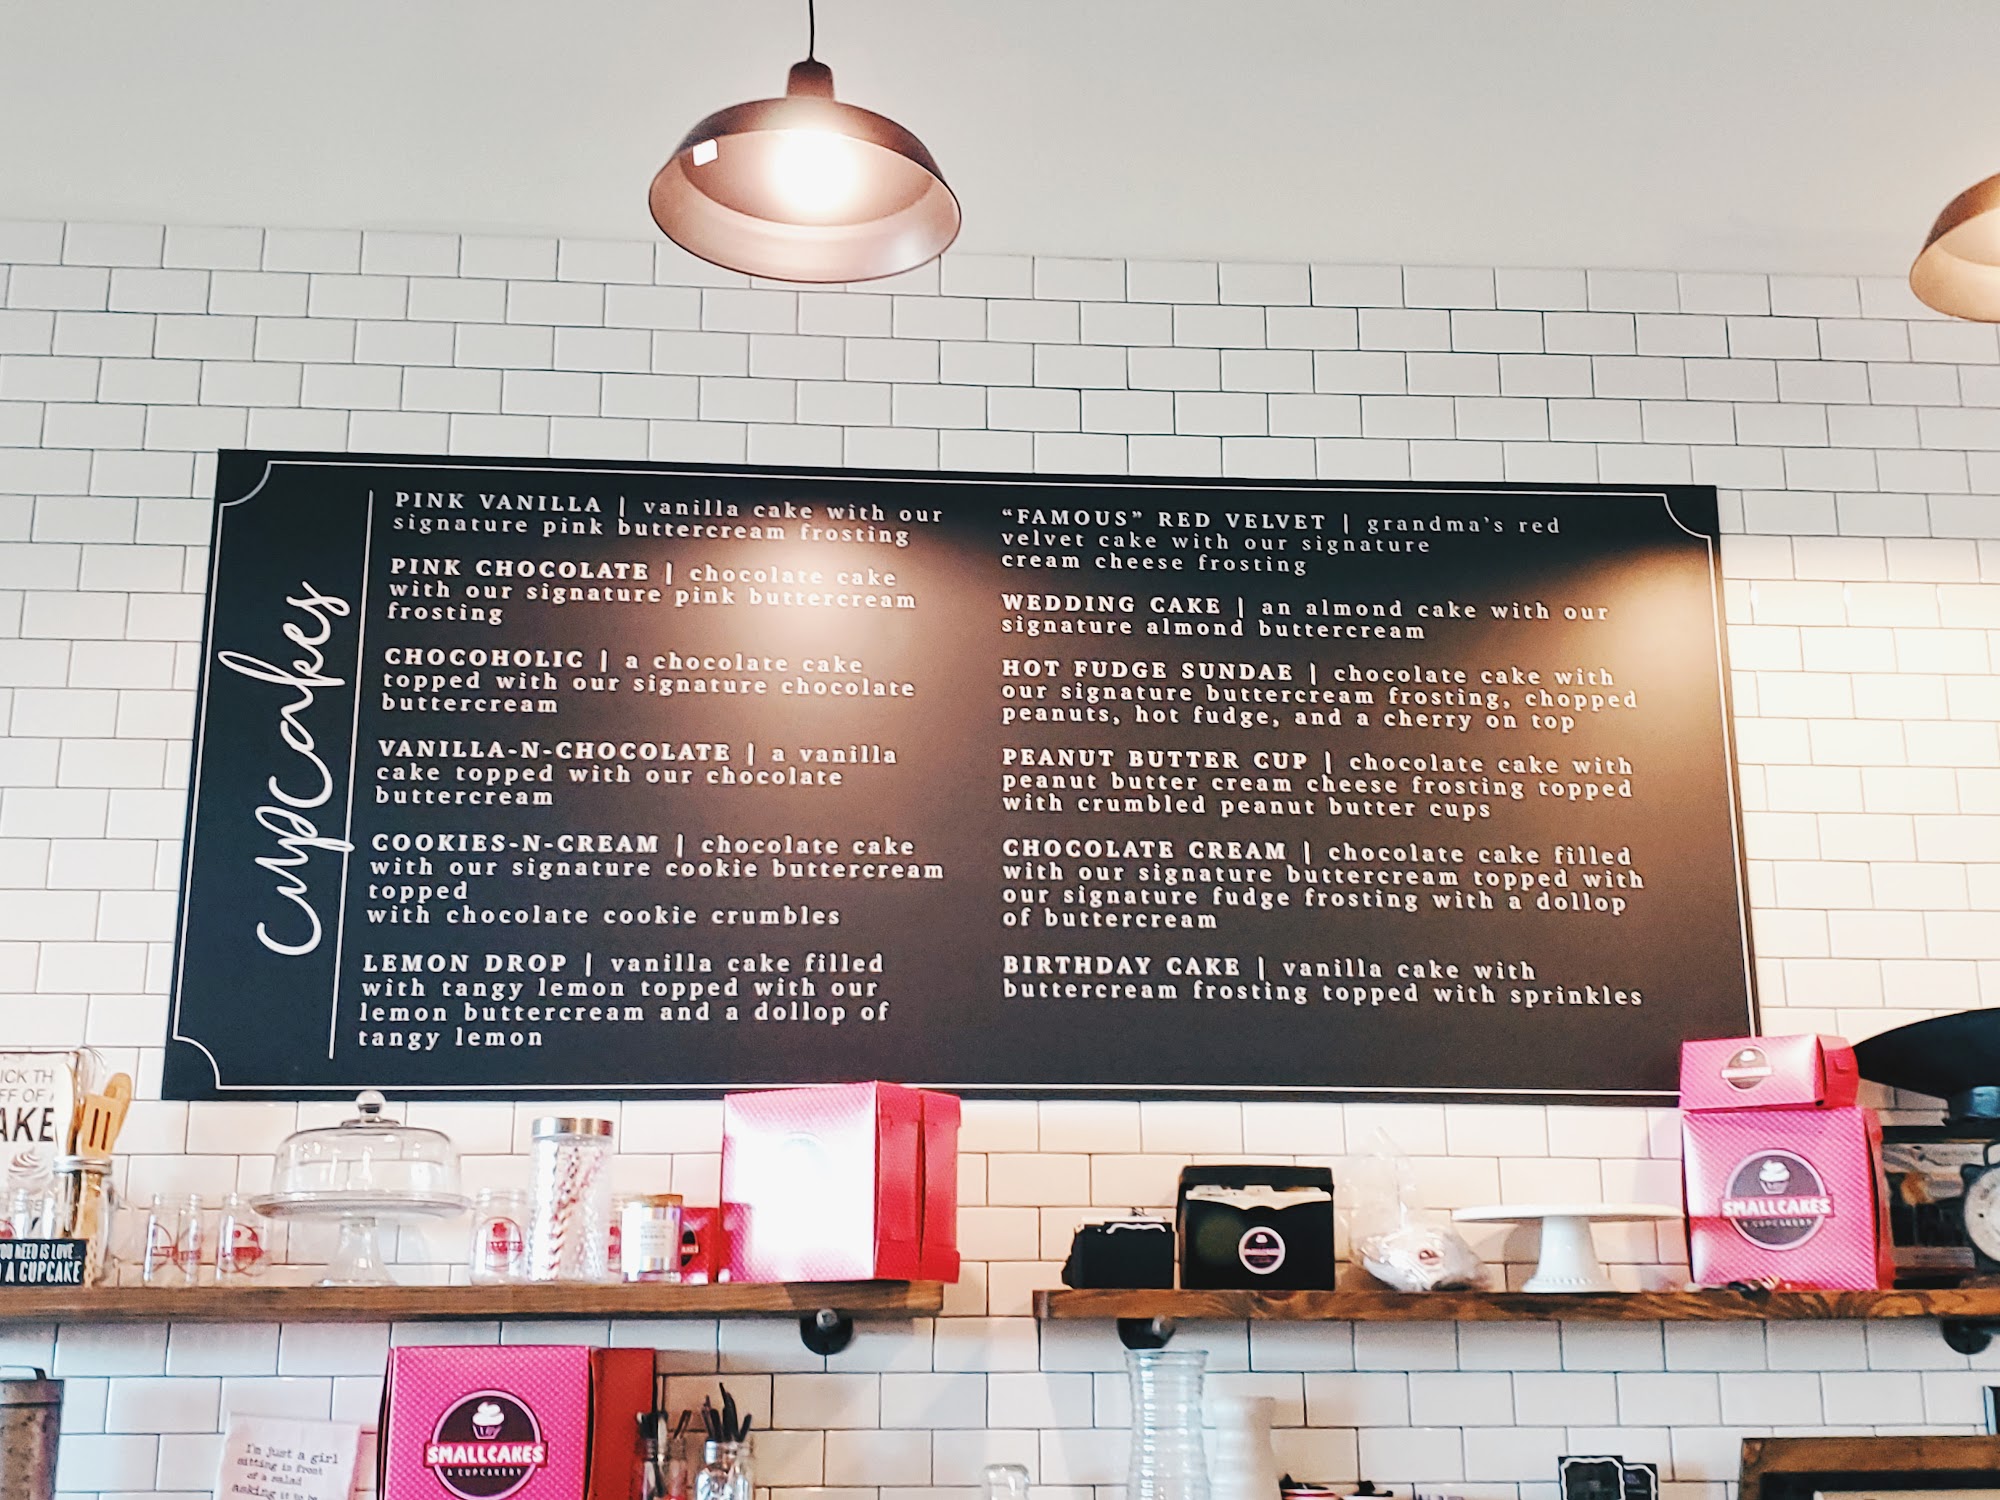 cupcakes
PINK VANILLA | vanilla cake with our
signature pink buttercream frosting
PINK CHOCOLATE | chocolate cake
with our signature pink buttercream
frosting
CHOCOHOLIC | a chocolate cake
topped with our signature chocolate
buttercream
VANILLA-N-CHOCOLATE | a vanilla
cake topped with our chocolate
buttercream
COOKIES-N-CREAM | chocolate cake
with our signature cookie buttercream
topped
with chocolate cookie crumbles
LEMON DROP | vanilla cake filled
with tangy lemon topped with our
lemon buttercream and a dollop of
tangy lemon
“FAMOUS” RED VELVET | grandma’s red
velvet cake with our signature
cream cheese frosting
WEDDING CAKE | an almond cake with our
signature almond buttercream
HOT FUDGE SUNDAE | chocolate cake with
our signature buttercream frosting, chopped
peanuts, hot fudge, and a cherry on top
PEANUT BUTTER CUP | chocolate cake with
peanut butter cream cheese frosting topped
with crumbled peanut butter cups
CHOCOLATE CREAM | chocolate cake filled
with our signature buttercream topped with
our signature fudge frosting with a dollop
of buttercream
BIRTHDAY CAKE | vanilla cake with
buttercream frosting topped with sprinkles
ICK TH
FF OF
AKE
OU NEED IS LOVE
A CUPCAKE
SMALLCAKES
A CUPCAKERY
SMALLCAKES
SMALLCAKES
A CUPCAKERY
I'm just a girl
sitting in front
of a salad
asking it to be